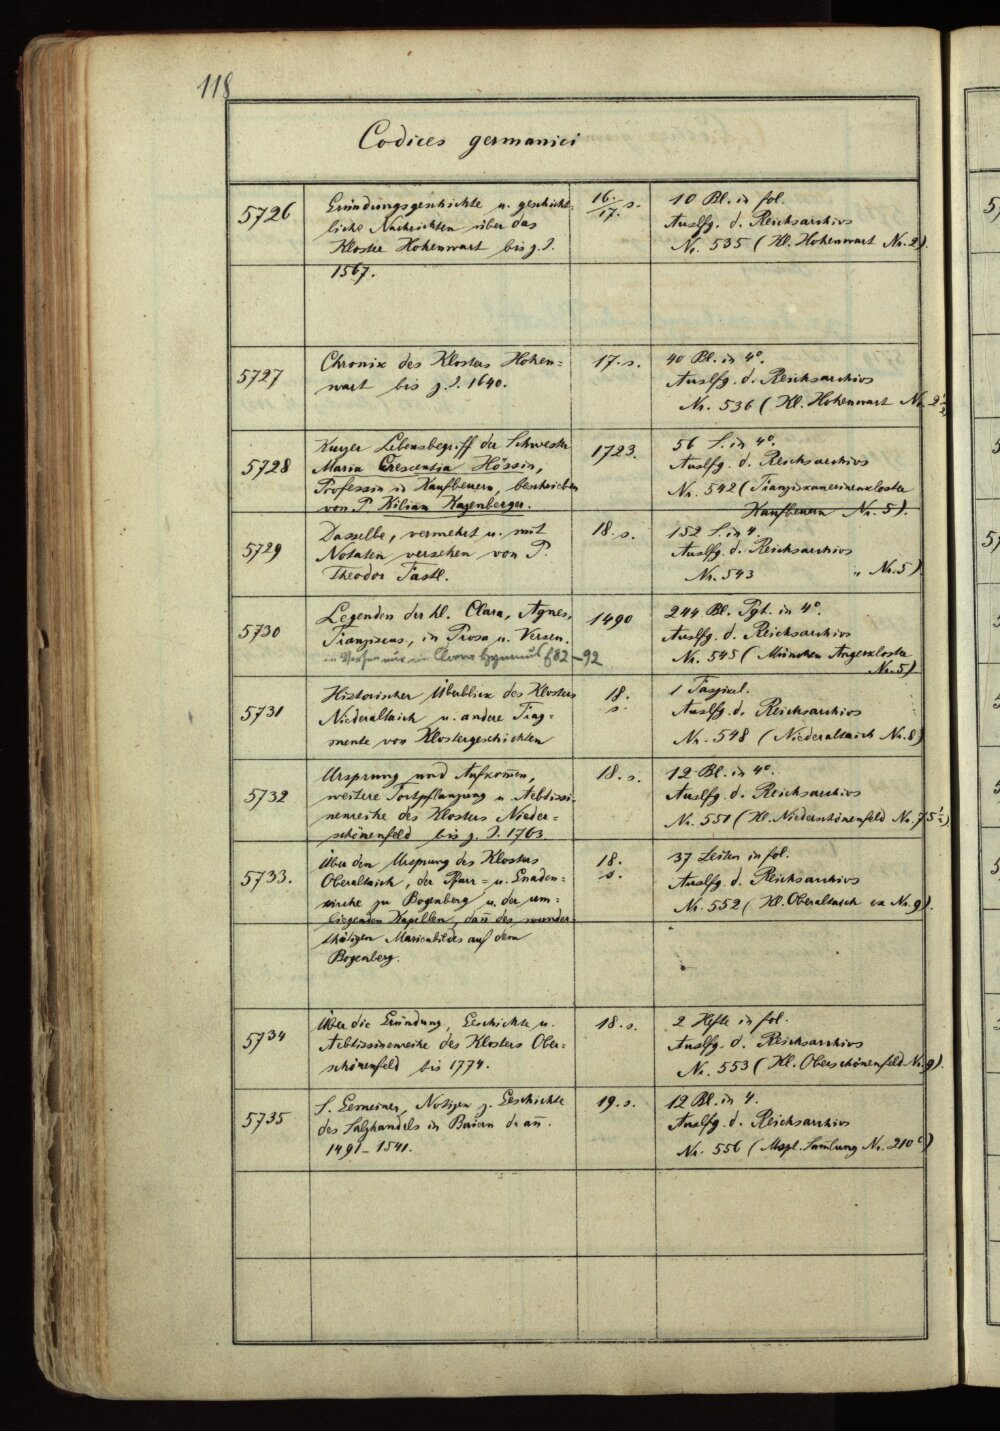 118
Codices germanici
5726
Gründungsgeschichte u. geschicht-
liche Nachrichten über das
Kloster Hohenwart bis z. J.
1567.
16./17. s.
10 Bl. in fol.
Auslfg. d. Reichsarchivs
Nr. 535 (Kl. Hohenwart Nr. 2).
5727
Chronik des Klosters Hohen=
wart bis z. J. 1640.
17. s.
40 Bl. in 4°.
Auslfg. d. Reichsarchivs
Nr. 536 (Kl. Hohenwart Nr. 2½
5728
Kurzer Lebensbegriff der Schwester
Maria Crescentia Hössin,
Professin in Kaufbeuern, beschrieben
von P. Kilian Kazenberger.
1723.
56 S. in 4°.
Auslfg. d. Reichsarchivs
Nr. 542 (Franziskanerinenkloster
Kaufbeuern Nr. 5).
5729
Dasselbe, vermehrt u. mit
Notaten versehen von P.
Theodor Fastl.
18. s.
152 S. in 4.
Auslfg. d. Reichsarchivs
Nr. 543 „ Nr. 5)
5730
Legenden der hl. Clara, Agnes,
Franziscus, in Prosa u. Versen.
in Versen nur ein Clara Hymnus f 82-92
1490
244 Bl. Pgt. in 4°.
Auslfg. d. Reichsarchivs
Nr. 545 (München Angerkloster
Nr. 5).
5731
Historischer Überblick des Klosters
Niederaltaich u. andere Frag=
mente von Klostergeschichten
18.
s.
1 Faszikel.
Auslfg. d. Reichsarchivs
Nr. 548 (Niederaltaich Nr. 8)
5732
Ursprung und Aufkom̄en,
weitere Fortpflanzung u. Aebtissi-
nenreihe des Klosters Nieder=
schönenfeld bis z. J. 1763.
18. s.
12 Bl. in 4°.
Auslfg. d. Reichsarchivs
Nr. 551 (Kl. Niederschönenfeld Nr. 75½)
5733.
Über den Ursprung des Klosters
Oberaltaich, der Pfarr= u. Gnaden=
kirche zu Bogenberg u. der um=
liegenden Kapellen, dañ des wunder-
thätigen Marienbildes auf dem
Bogenberg.
18.
s.
37 Seiten in fol.
Auslfg. d. Reichsarchivs
Nr. 552 (Kl. Oberaltaich ex Nr. 9).
5734
Über die Gründung, Geschichte u.
Aebtissinenreihe des Klosters Ober=
schönenfeld bis 1774.
18. s.
2 Hefte in fol.
Auslfg. d. Reichsarchivs
Nr. 553 (Kl. Oberschönenfeld Nr. 9).
5735
F. Gemeiner, Notizen z. Geschichte
des Salzhandels in Baiern de añ.
1491-1541.
19. s.
12 Bl. in 4.
Auslfg. d. Reichsarchivs
Nr. 556 (Mspt. Sam̄lung Nr. 210 c)